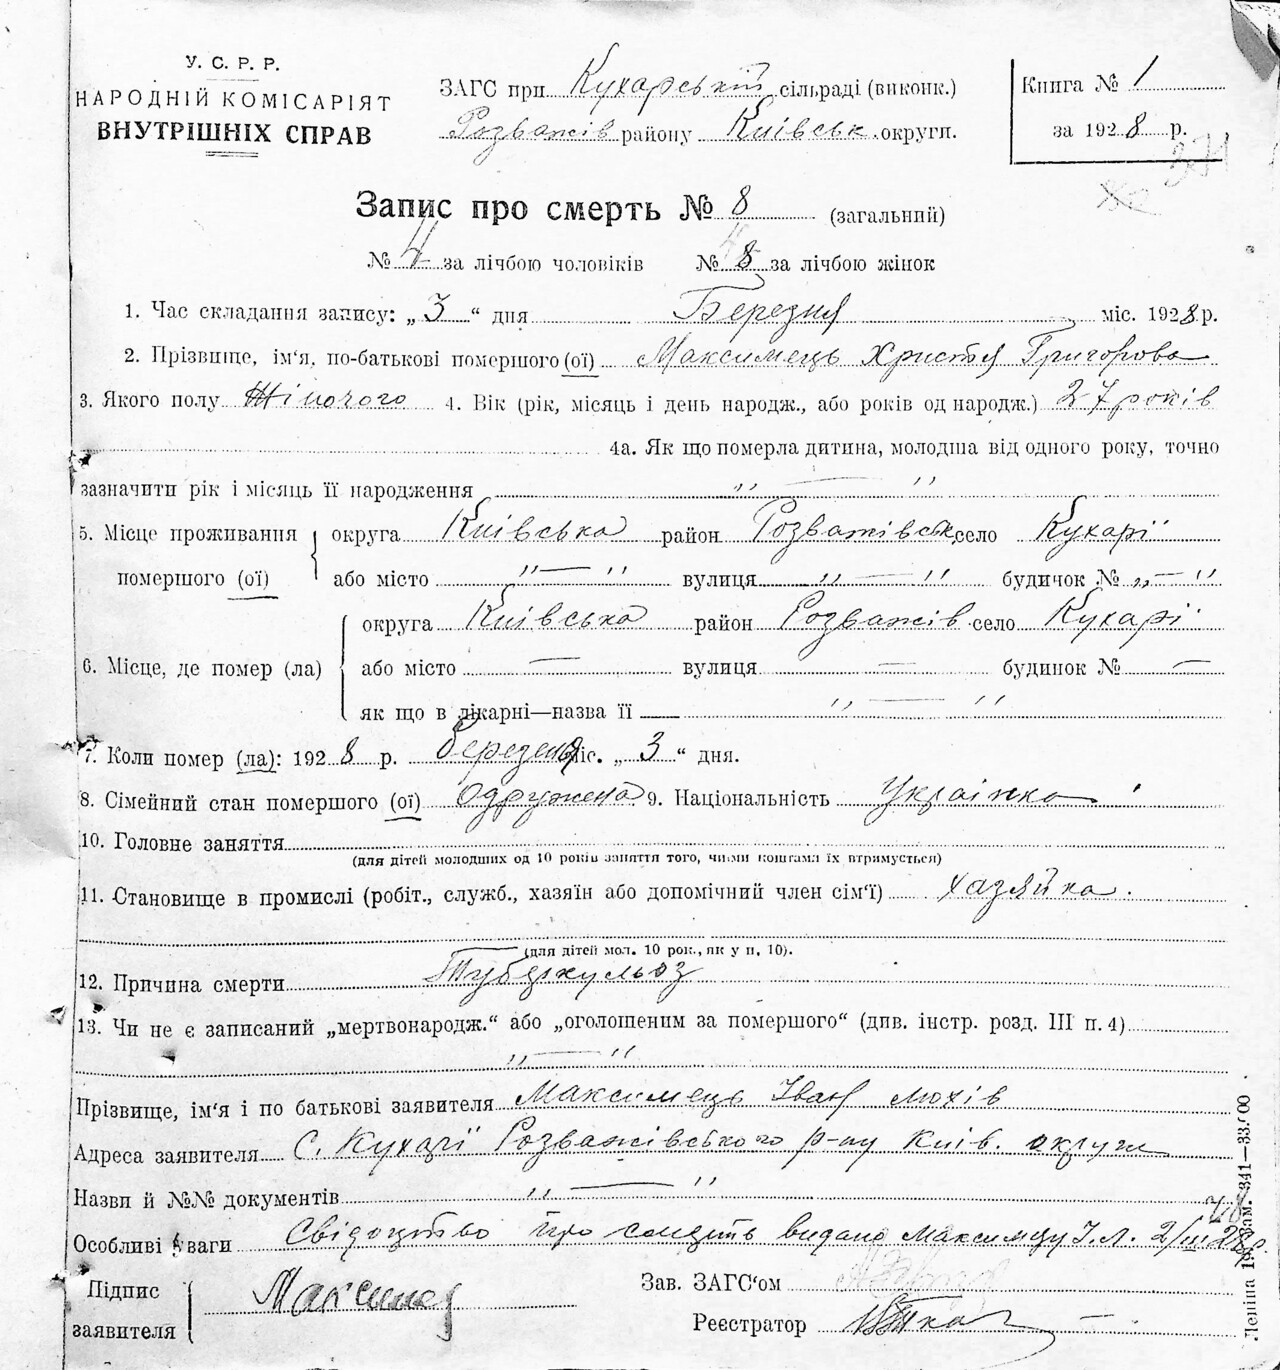 У. С. Р. Р.
НАРОДНІЙ КОМІСАРІЯТ
ВНУТРІШНІХ СПРАВ
ЗАГС при Кухарській сільраді (виконк.)
Розважів району Київськ. округи.
Книга № 1
за 1928 р.
371
Запис про смерть № 8 (загальний)
№ за лічбою чоловіків № 8 за лічбою жінок
1. Час складання запису: „3“ дня Березня міс. 1928 р.
2. Прізвище, ім'я, по-батькові помершого (ої) Максимець Христя Григорова
3. Якого полу Жіночого 4. Вік (рік, місяць і день народж., або років од народж.) 27 років
4а. Як що померла дитина, молодша від одного року, точно
зазначити рік і місяць її народження „ — “
5. Місце проживання помершого (ої) округа Київська район Розважівськ. село Кухарії
або місто „ — “ вулиця „ — “ будинок № „ — “
6. Місце, де помер (ла) округа Київська район Розважів. село Кухарії
або місто — вулиця — будинок № —
як що в лікарні—назва її „ — “
7. Коли помер (ла): 1928 р. березеня міс. „3“ дня.
8. Сімейний стан помершого (ої) Одружена 9. Національність Українка
10. Головне заняття
(для дітей молодших од 10 років заняття того, чиїми коштами їх втримується)
11. Становище в промислі (робіт., служб., хазяїн або допомічний член сім'ї) хазяйка.
(для дітей мол. 10 рок., як у п. 10).
12. Причина смерти Туберкульоз
13. Чи не є записаний „мертвонародж.“ або „оголошеним за помершого“ (див. інстр. розд. III п. 4)
„ — “
Прізвище, ім'я і по батькові заявителя Максимець Іван
Адреса заявителя С. Кухарії Розважівського р-ну Київ. округи
Назви й №№ документів „ — “
Особливі уваги Свідоцтво про смерть видано Максимцу І. Л. 2/III 28 р.
Підпис заявителя Максимец
Зав. ЗАГС'ом
Реєстратор